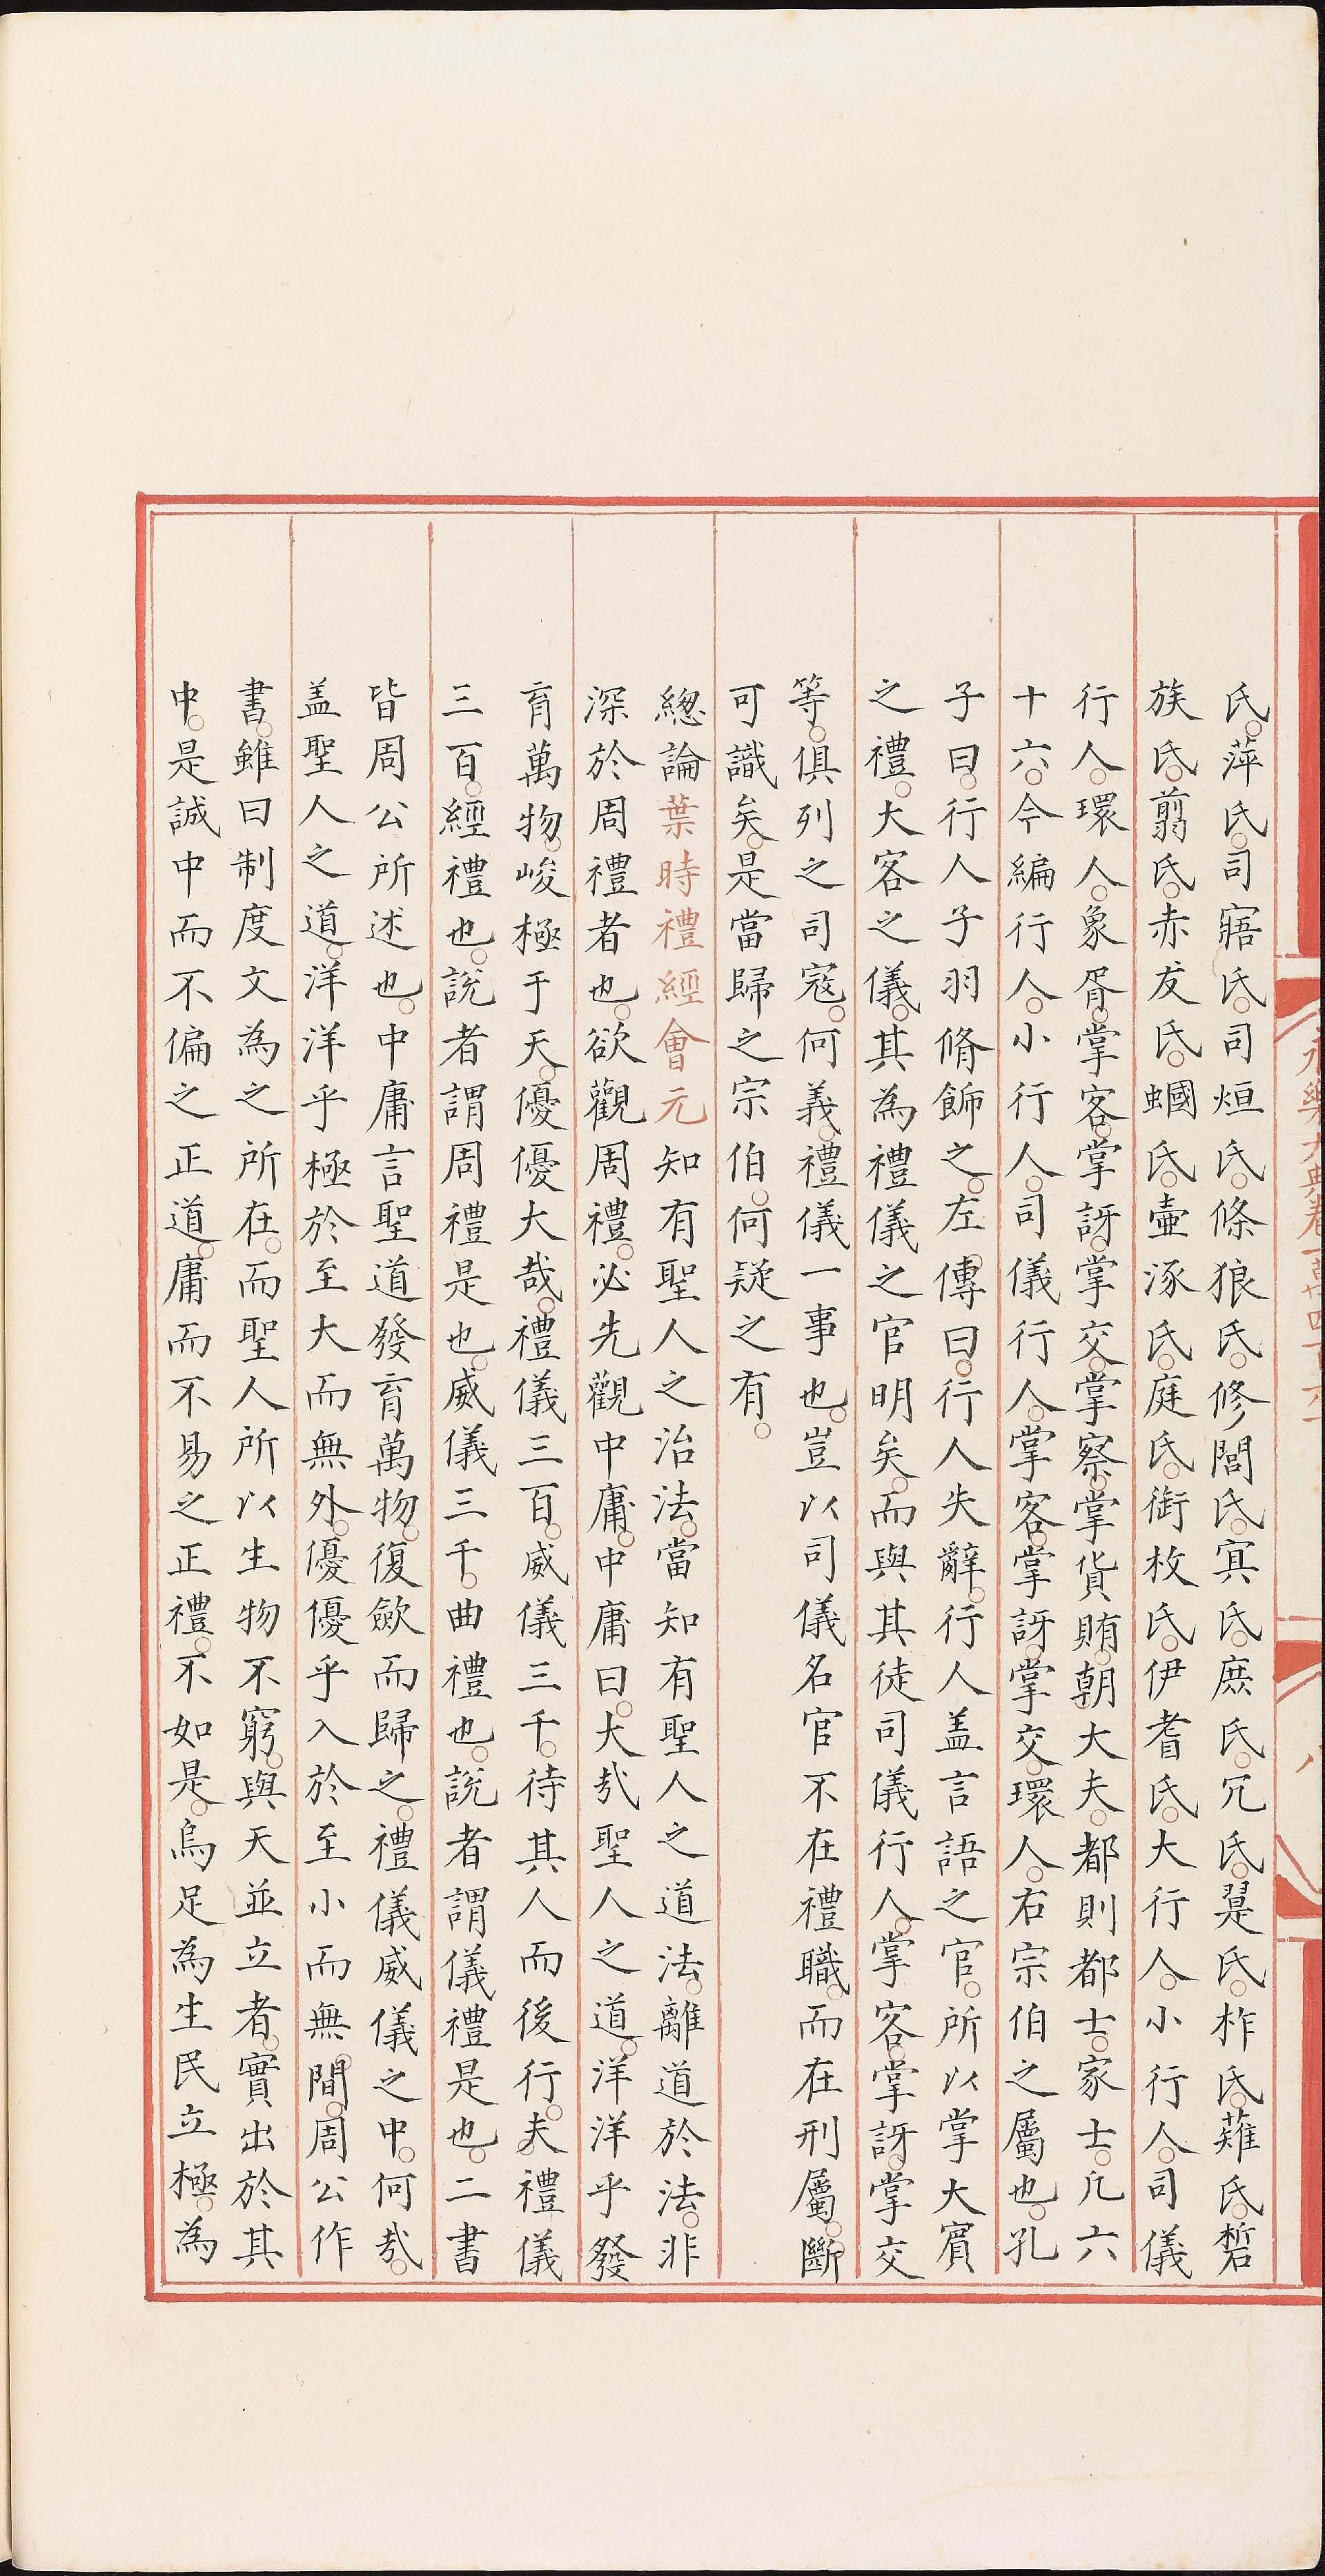 永樂大典卷一萬四百六十
八
氏。萍氏。司寤氏。司烜氏。條狼氏。修閭氏。冥氏。庶氏。冗氏。翨氏。柞氏。薙氏。硩
族氏。翦氏。赤犮氏。蟈氏。壷涿氏。庭氏。銜枚氏。伊耆氏。大行人。小行人。司儀
行人。環人。象胥。掌客。掌訝。掌交。掌察。掌貨賄。朝大夫。都則都士。家士。凡六
十六。今編行人。小行人。司儀行人。掌客。掌訝。掌交。環人。右宗伯之屬也。孔
子曰。行人子羽脩飾之。左傳曰。行人失辭。行人盖言語之官。所以掌大賓
之禮。大客之儀。其為禮儀之官明矣。而與其徒司儀行人。掌客。掌訝。掌交
等。俱列之司寇。何義。禮儀一事也。豈以司儀名官不在禮職。而在刑屬。斷
可識矣。是當歸之宗伯。何疑之有。
緫論葉時禮經會元知有聖人之治法。當知有聖人之道法。離道於法。非
深於周禮者也。欲觀周禮。必先觀中庸。中庸曰。大㢤聖人之道。洋洋乎發
育萬物。峻極于天。優優大哉。禮儀三百。威儀三千。待其人而後行。夫禮儀
三百。經禮也。說者謂周禮是也。威儀三千。曲禮也。說者謂儀禮是也。二書
皆周公所述也。中庸言聖道發育萬物。復歛而歸之。禮儀威儀之中。何㢤。
盖聖人之道。洋洋乎極於至大而無外。優優乎入於至小而無間。周公作
書。雖曰制度文為之所在。而聖人所以生物不窮。與天並立者。實出於其
中。是誠中而不偏之正道。庸而不易之正禮。不如是。烏足為生民立極。為